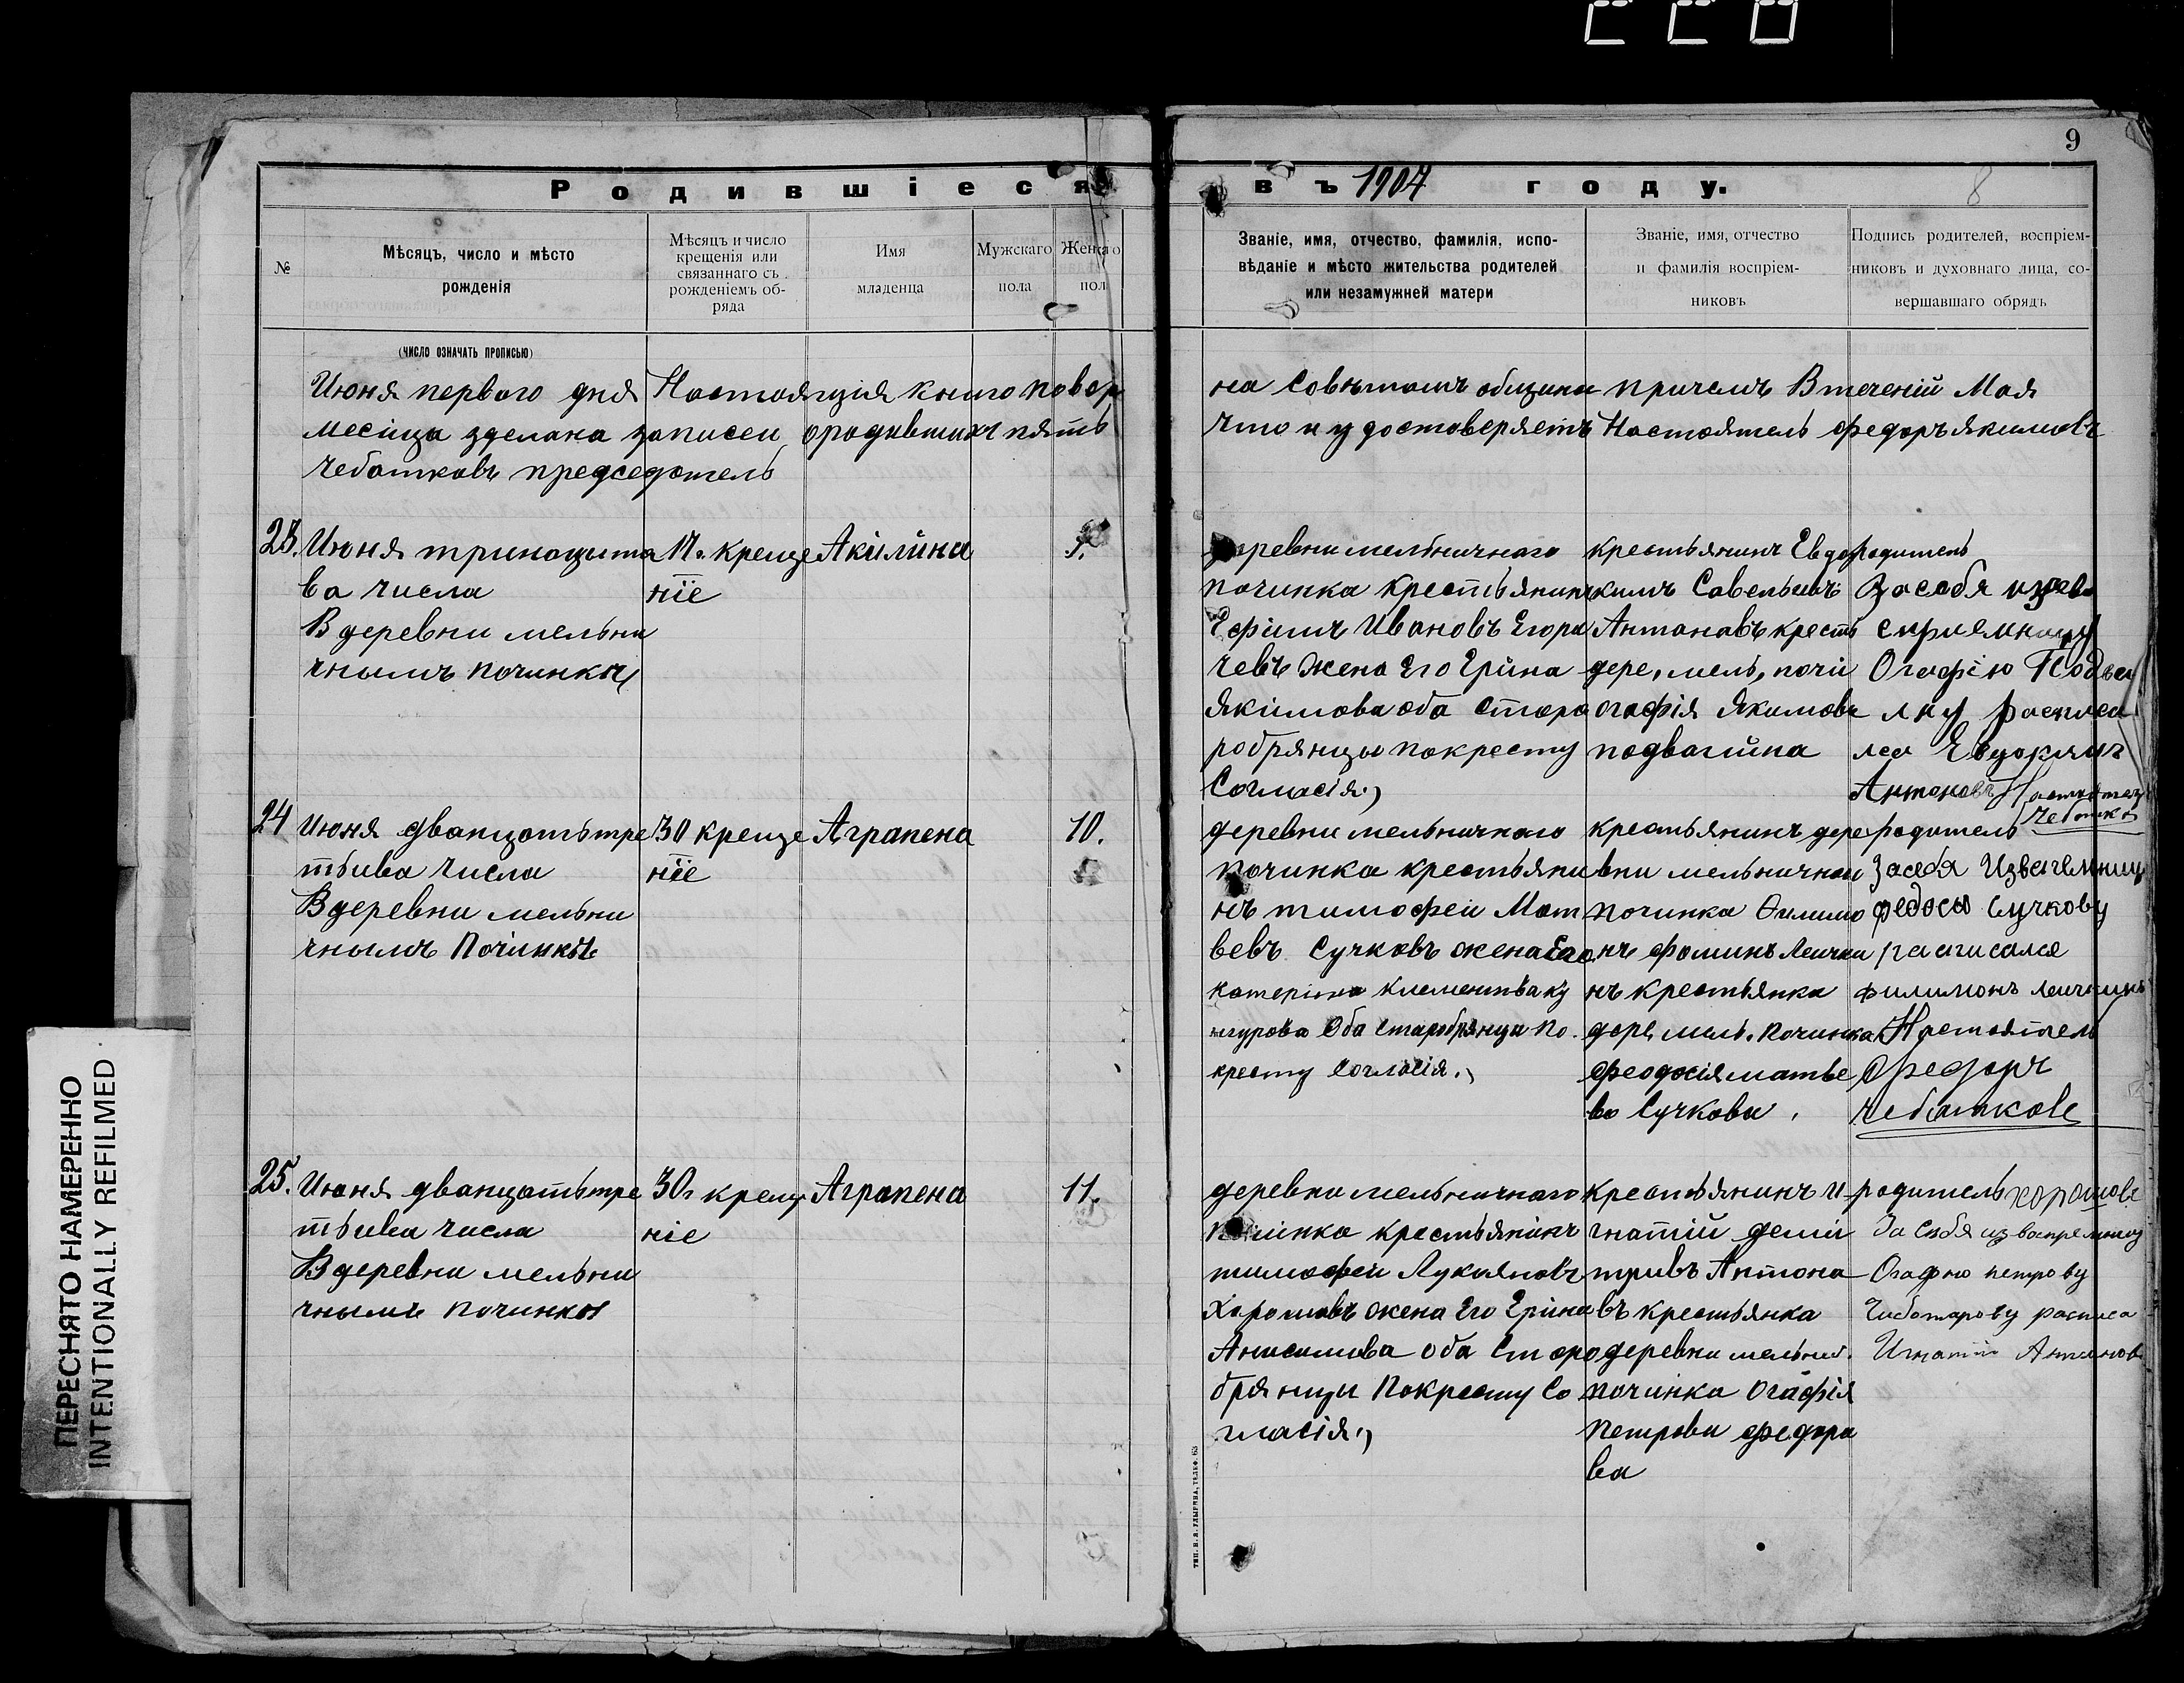 9
8
Родившіеся
въ 1907 году.
№
Мѣсяцъ, число и мѣсто
рожденія
Мѣсяцъ и число
крещенія или
связаннаго съ
рожденіемъ об-
ряда
Имя
младенца
Мужскаго
пола
Женскаго
пол
Званіе, имя, отчество, фамилія, испо-
вѣданіе и мѣсто жительства родителей
или незамужней матери
Званіе, имя, отчество
и фамилія воспріем-
никовъ
Подпись родителей, воспріем-
никовъ и духовнаго лица, со-
вершавшаго обрядъ
(число означать прописью)
Июня первого дня Настоящія книго повер
на Совѣтомъ общины причемъ Втеченій Мая
месеца зделана записеи ородившихъ пять
что и удостоверяетъ Настоятель Федоръ якимовъ
чебатковъ председатель
23.
Июня тринацыта
ва числа
В деревни мельни
чнымъ починкы
17. креще
ніе
Акилина
9.
деревни мельничнаго
починка крестьянинъ
Ефимъ Ивановъ Егоры
чевъ жена Его Ерина
Якимова оба Старо
робрянцы покресту
Согласія.,
крестьянинъ Евдо
кимъ Савельивъ
Антонавъ кресть
дере, мель, почи
огафія Якимовa
подвагина
родитель
Засебя
Огафію
лку расписа
лса Евдокимъ
Антоновъ
24
Июня дванцать тре
тьива числа
В деревни мельни
чнымъ Починкы
30 креще
ніе
Аграпена
10.
деревни мельничнаго
починка крестьяни
нъ тимофеи Мат
вевъ Сучковъ жена Его
катерина клементьва ку
нгурова Оба старобрянцы по.
кресту Согласія.,
крестьянинъ дере
вни мельничнаи
починка Филимо
нъ фоминъ Леички
нъ крестьянка
дере, мель, починка
феодосія матве
ва Сучкова,
родитель
засебя
федосы Сучкову
расписался
филимонъ леичкинъ
Настоятель
Федоръ
чебатковъ
25.
Июня дванцать тре
тьива числа
В деревни мельни
чнымъ починкы
30, крещ
ніе
Аграпена
11.
деревни мельничнаго
починка крестьянинъ
тимофеи Лукияновъ
Хорошавъ жена Его Ерина
Анисимива оба Старо
брянцы Покресту Со
гласія.,
крестьянинъ И
гнатій деми
тривъ Антона
въ крестьянка
деревни мельнич.
починка огафія
Петрова федора
ва
родитель хорошовъ
За себя
Огафю петрову
расписа
Игнатий Антонов
ТИП. Н. Я. УЛЫБИНА, ТЕЛЕФ. 63
ПЕРЕСНЯТО НАМЕРЕННО
INTENTIONALLY REFILMED